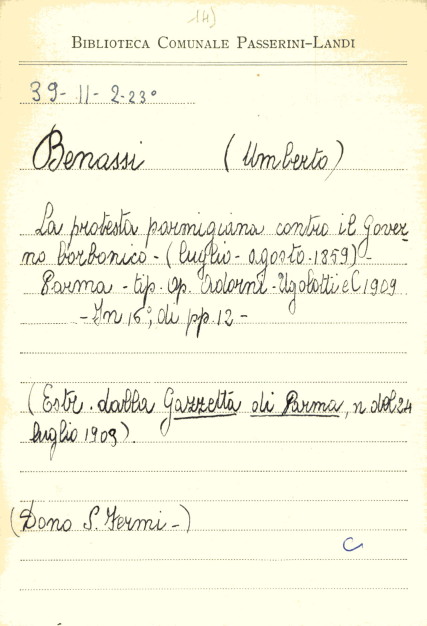 14)
BIBLIOTECA COMUNALE PASSERINI-LANDI
39-11-2-23°
Benassi (Umberto)
La protesta parmigiana contro il Gover
no borbonico - (luglio - agosto - 1859) -
Parma - tip. Op. Adorni - Ugolotti e C 1909
- In 16°, di pp. 12 -
(Estr. dalla Gazzetta di Parma, n del 24
luglio 1909).
(Dono S. Fermi -)
C